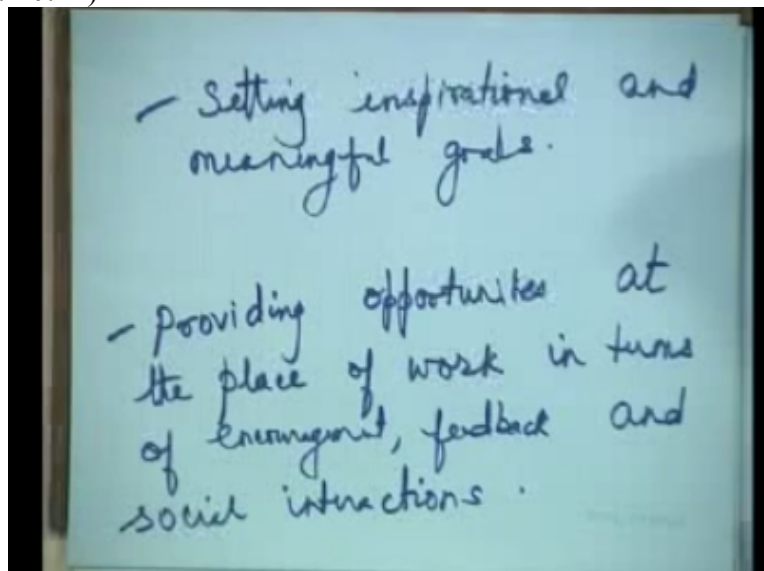 - Setting inspirational and
meaningful goals.
- Providing opportunities at
the place of work in terms
of encouragement, feedback and
social interactions.